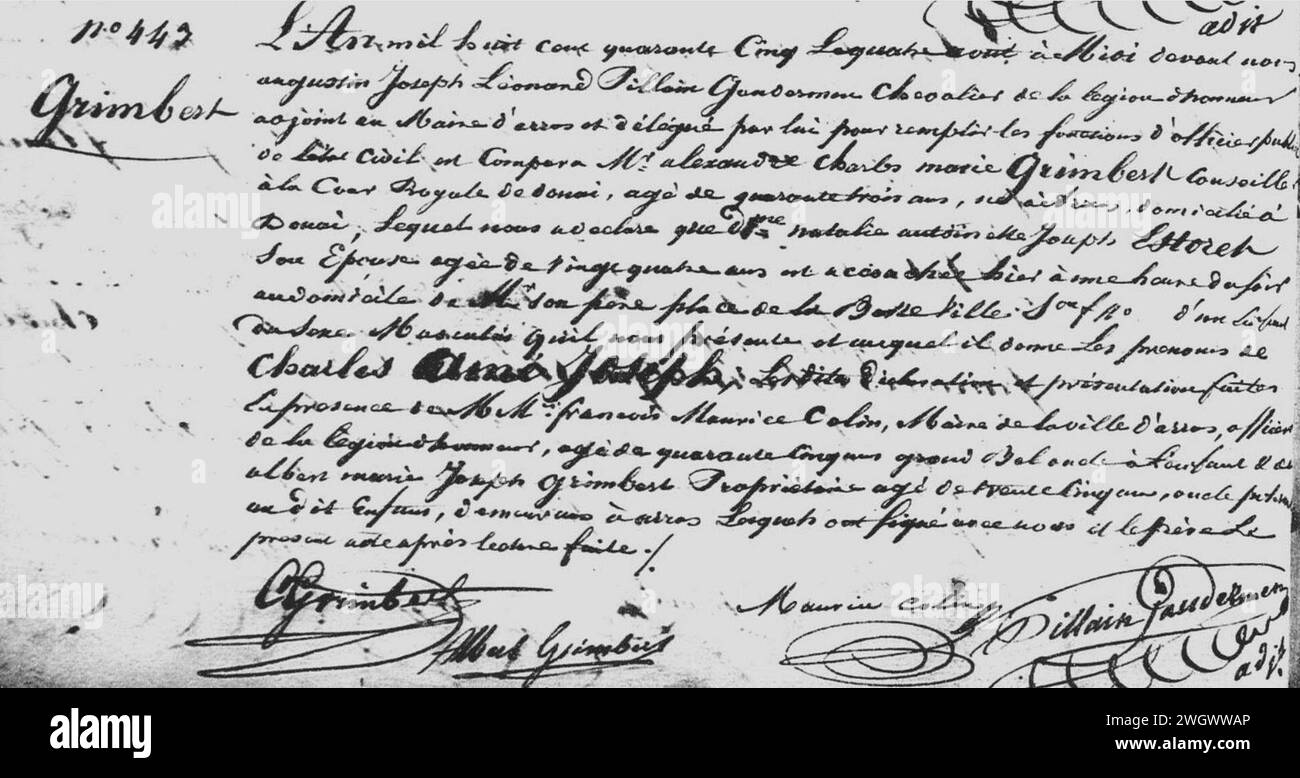 adjt
nº 443
Grimbert
L'An mil huit cent quarante Cinq Le quatre aout à Midi devant nous
augustin Joseph Léonard Pillain Gandermen Chevalier de la légion d'honneur
adjoint au Maire d'arras et délégué par lui pour remplir les fonctions d'officier public
de l'état Civil est Comparu Mr alexandre Charles marie Grimbert Conseiller
à la Cour Royale de douai, agé de quarante trois ans, né à domicilié à
Douai, Lequel nous a déclaré que dme natalie antoinette Joseph
Son Epouse agée de vingt quatre ans est accouchée hier à une heure du soir
au domicile de Mr son père place de la Basse Ville d'un Enfant
du Sexe Masculin qu'il nous présente et auquel il donne Les prénoms de
Charles Aimé Joseph, Lesdites Déclaration et présentation faites
En présence de M Mrs françois Maurice Colin, Maire de la ville d'arras, officier
de la Légion d'honneur, agé de quarante Cinq ans grand à l'enfant & de
albert marie Joseph Grimbert Propriétaire agé de trente Cinq ans, oncle paternel
au dit Enfant, demeurans à arras Lesquels ont signé avec nous et le père Le
présent acte après lecture faite ./
Grimbert
Albert Grimbert
Maurice Colin
Pillain Gandermen
adjt
alamy
Image ID: 2WGWWAP
www.alamy.com